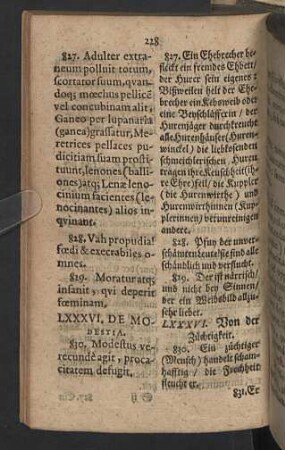 228
827. Adulter extra-
neum polluit torum,
scortator suum, quan-
doq; mœchus pellicē
vel concubinam alit,
Ganeo per lupanaria
(ganea) grassatur, Me-
retrices pellaces pu-
dicitiam suam prosti-
tuunt, lenones (balli-
ones) atq; Lenæ leno-
cinium facientes (le-
nocinantes) alios in-
qvinant.
828. Vah propudia!
fœdi & execrabiles o-
mnes.
829. Moratur atq;
insanit, qui deperit
fœminam.
LXXXVI. DE MO-
DESTIA.
830. Modestus ve-
recundè agit, proca-
citatem defugit.
827. Ein Ehebrecher be-
fleckt ein fremdes Ehbett/
der Hurer sein eigenes:
Bißweilen helt der Ehe-
brecher ein Kebsweib oder
eine Beyschläfferin / der
Hurenjäger durchkreucht
alle Hurenhäuser (Huren-
winckel) die liebkosenden
schmeichlerischen Huren
tragen ihre Keuscheit (ih-
re Ehre) feil/ die Kupler
(die Hurenwirthe) und
Hurenwirthinnen (Kup-
plerinnen) verunreinigen
andere.
828. Pfuy der unver-
schämten
schändlich und verflucht.
829. Der ist närrisch/
und nicht bey Sinnen/
der ein Weibsbild allzu-
sehr liebet.
LXXXVI. Von der
Züchtigkeit.
830. Ein züchtiger
(Mensch) handelt scham-
hafftig / die Frechheit
fleucht er.
831. Er